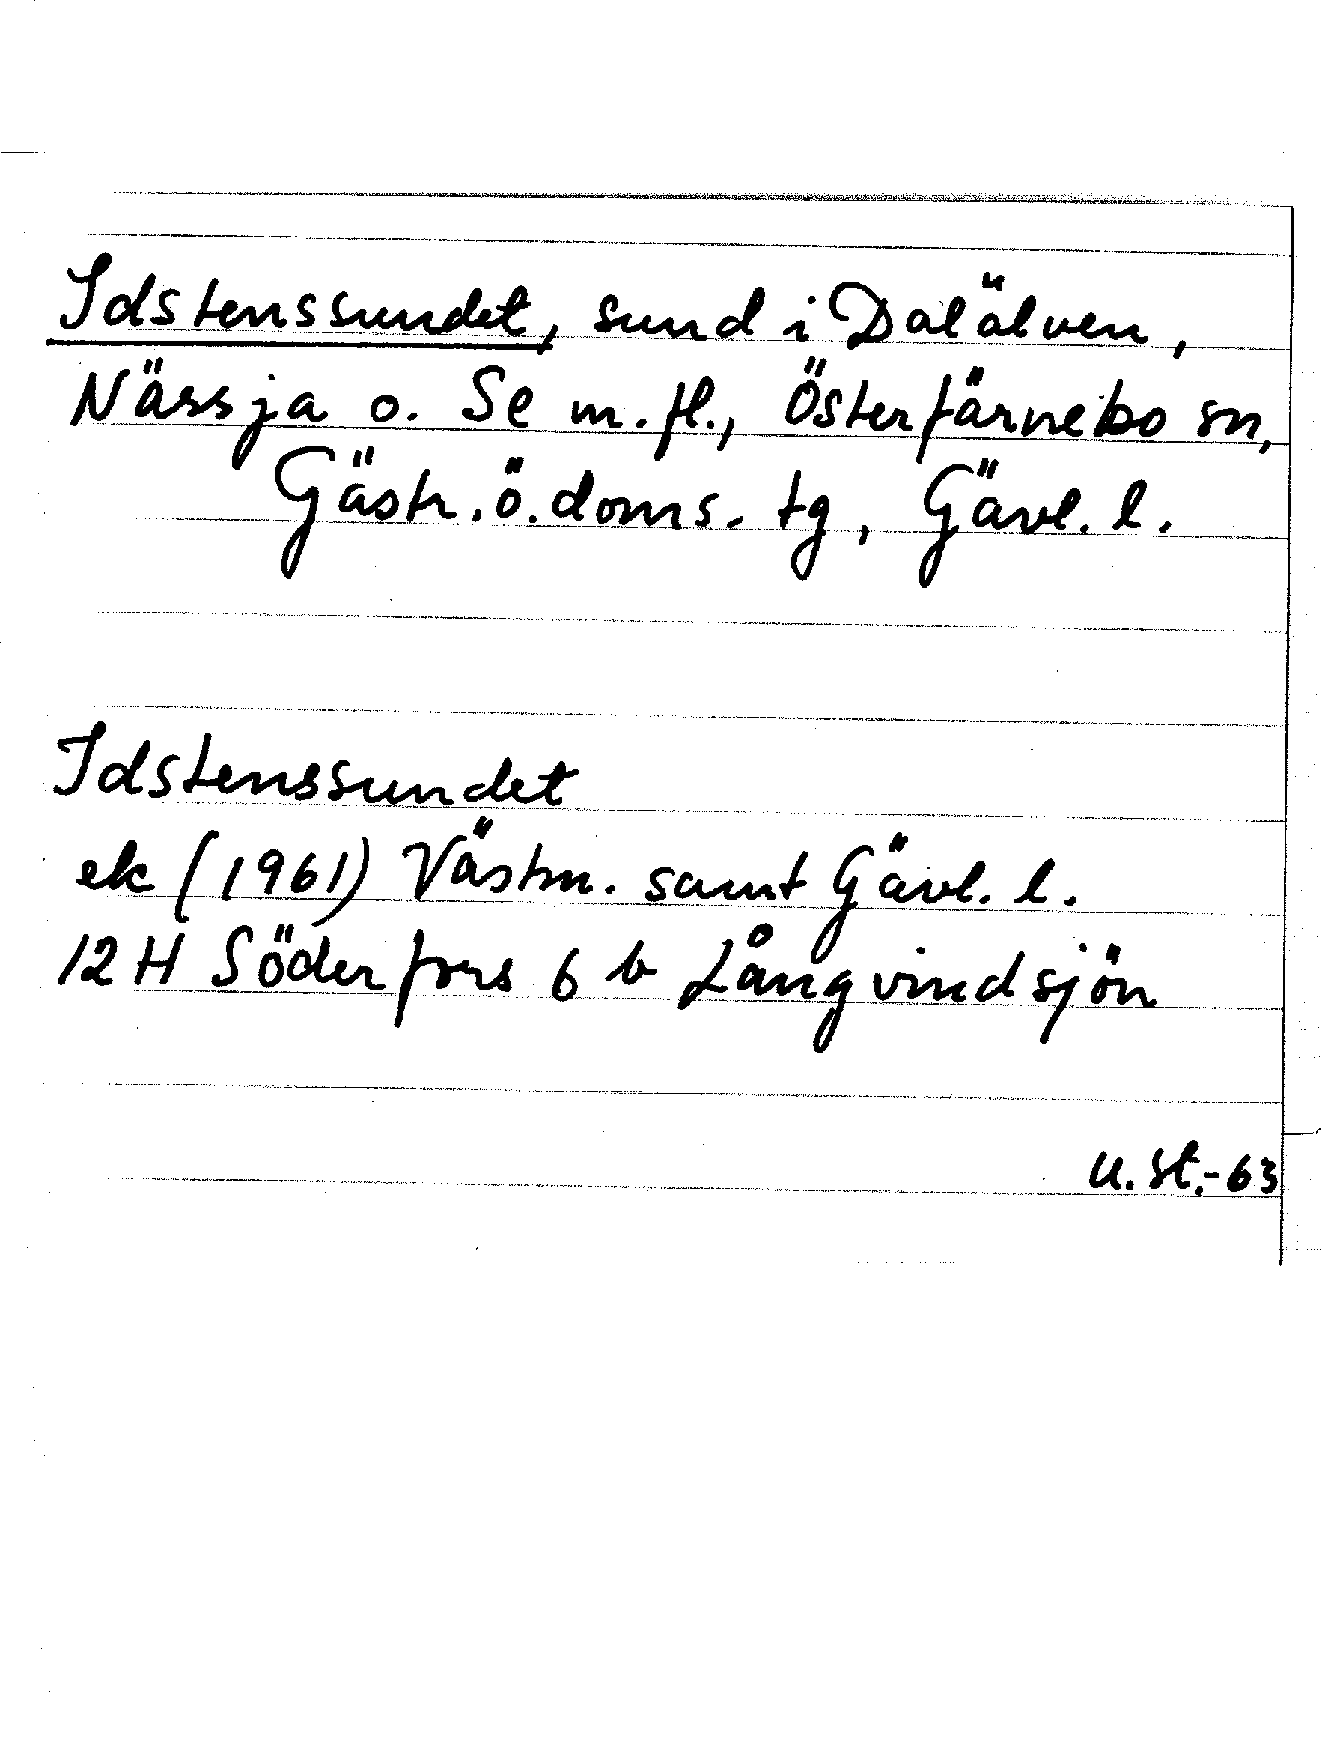 Idstenssundet, sund i Dalälven,
Nässja o. Se m.fl., Österfärnebo sn,
Gästr. ö. doms. tg, Gävl. l.
Idstenssundet
ek (1961) Västm. samt Gävl. l.
12 H Söderfors 6 b Långvindsjön
U. St.-63